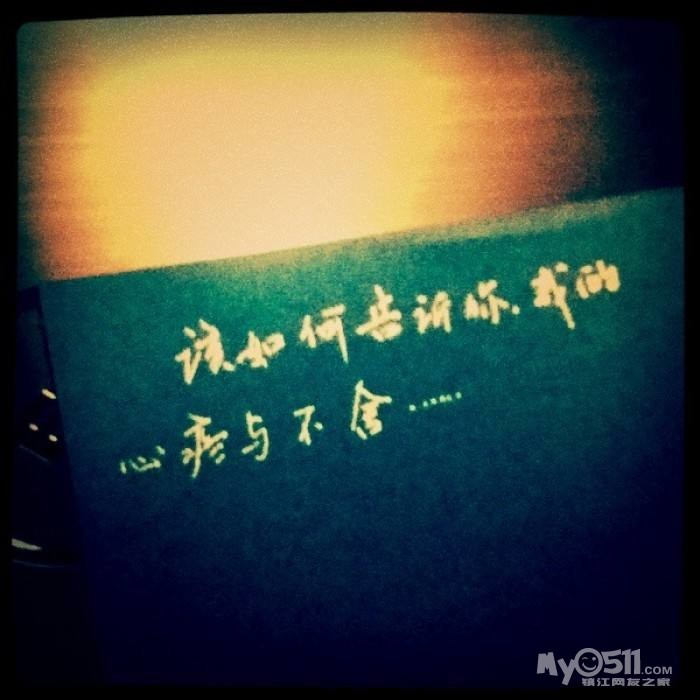 该如何告诉你,我的
心疼与不舍......
My0511.com
镇江网友之家